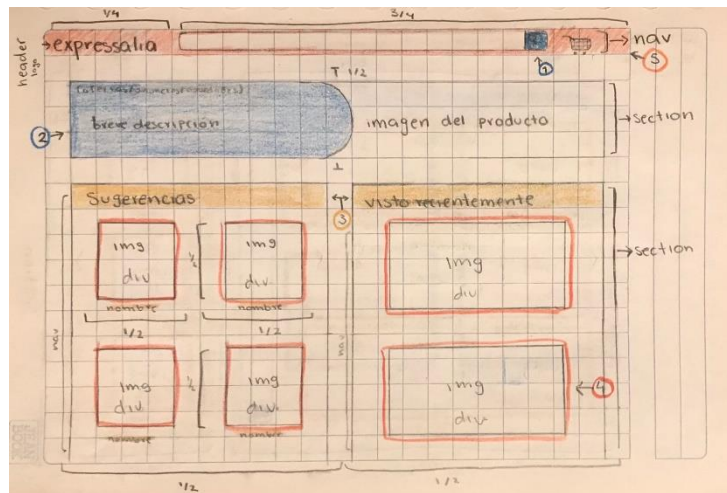 1/4 3/4
header
logo
expressalia
nav
1
5
1/2
2
breve descripción
imagen del producto
section
Sugerencias
3
visto recientemente
section
img
div
nombre
1/2
img
div
nombre
1/2
1/2
img
div
nav
nav
img
div
nombre
1/2
img
div.
nombre
img
div.
4
1/2
1/2